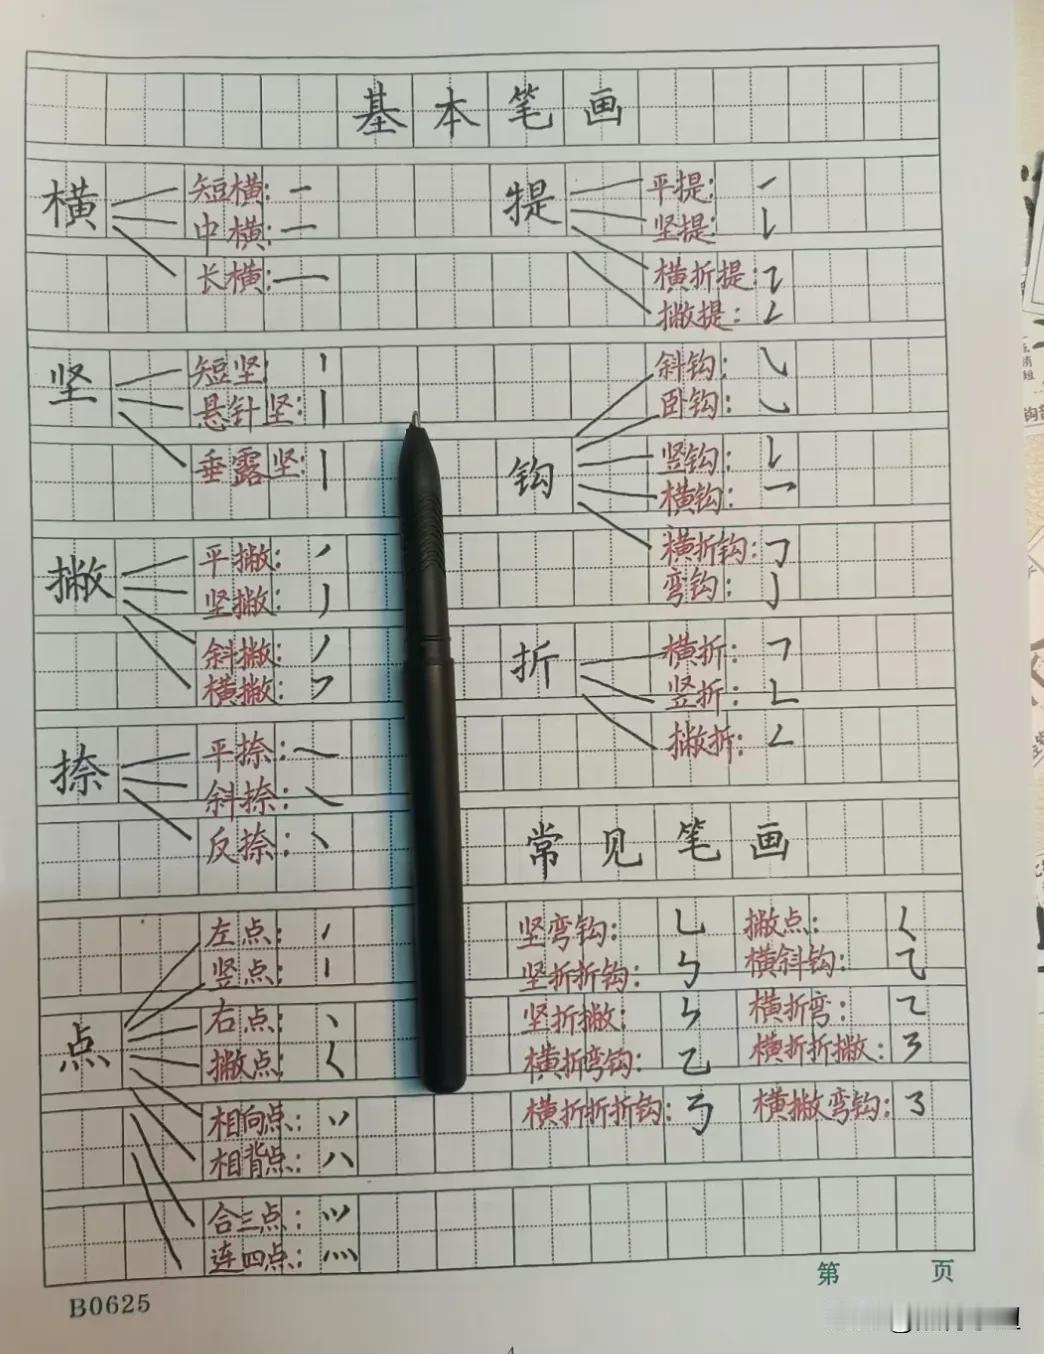 基本笔画
横
短横:㇐
中横:㇐
长横:㇐
坚
短坚:丨
悬针坚:丨
垂露坚:丨
撇
平撇:㇒
坚撇:丿
斜撇:㇒
横撇:㇇
捺
平捺:㇏
斜捺:㇏
反捺:㇔
点
左点:
竖点:
右点:㇔
撇点:㇛
相向点:
相背点:
合三点:
连四点:灬
提
平提:㇀
坚提:㇙
横折提:㇊
撇提:㇜
钩
斜钩:㇂
卧钩:㇃
竖钩:亅
横钩:㇖
横折钩:㇆
弯钩:㇁
折
横折:㇕
竖折:㇗
撇折:㇜
常见笔画
坚弯钩:乚 撇点:㇛
坚折折钩:㇉ 横斜钩:⺄
坚折撇:㇞ 横折弯:㇍
横折弯钩:㇈ 横折折撇:㇋
横折折折钩:㇡ 横撇弯钩:㇌
第 页
B0625